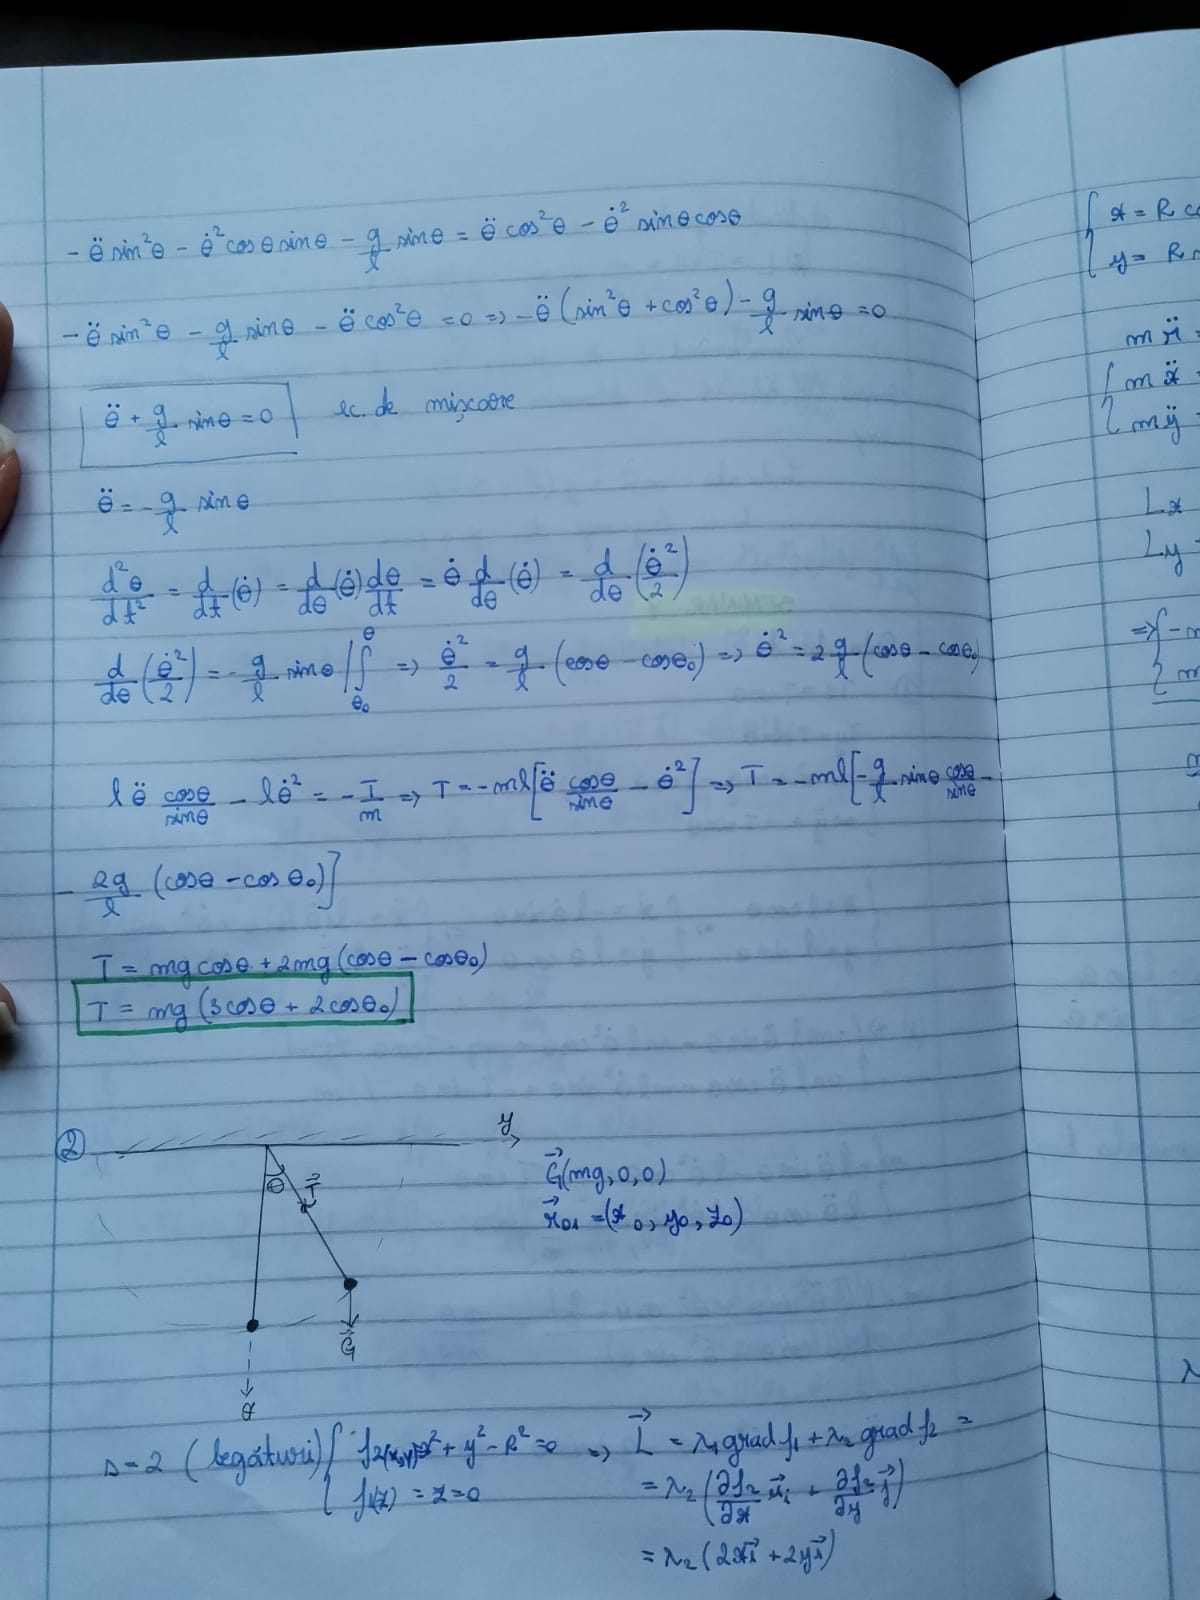 - θ̈ sin²θ - θ̇² cosθ sinθ - g/l sinθ = θ̈ cos²θ - θ̇² sinθ cosθ
- θ̈ sin²θ - g/l sinθ - θ̈ cos²θ = 0 => - θ̈ (sin²θ + cos²θ) - g/l sinθ = 0
θ̈ + g/l sinθ = 0 ec. de mișcare
θ̈ = - g/l sinθ
d²θ/dt² = d/dt (θ̇) = d/dθ (θ̇) dθ/dt = θ̇ d/dθ (θ̇) = d/dθ (θ̇²/2)
d/dθ (θ̇²/2) = - g/l sinθ | ∫_θ₀^θ => θ̇²/2 = g/l (cosθ - cosθ₀) => θ̇² = 2 g/l (cosθ - cosθ₀)
l θ̈ cosθ/sinθ - l θ̇² = - T/m => T = - ml [θ̈ cosθ/sinθ - θ̇²] => T = - ml [- g/l sinθ cosθ/sinθ -
- 2g/l (cosθ - cosθ₀)]
T = mg cosθ + 2mg (cosθ - cosθ₀)
T = mg (3cosθ + 2cosθ₀)
②
y
θ
T⃗
G⃗
x
G⃗(mg, 0, 0)
r⃗₀₁ = (x₀, y₀, z₀)
s = 2 (legături) { f₂(x,y) = x² + y² - R² = 0 => L⃗ = λ₁ grad f₁ + λ₂ grad f₂ =
f₁(z) = z = 0
= λ₂ (∂f₂/∂x i⃗ + ∂f₂/∂y j⃗)
= λ₂ (2x i⃗ + 2y j⃗)
{ x = R
y = R
m
{ m ẍ
m ÿ
Lx
Ly
=> { - m
m
λ